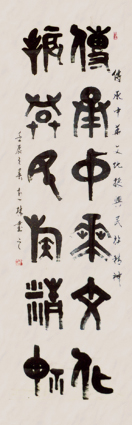 傳承中華文化振興民族精神
傳承中華文化
振興民族精神
壬辰 書